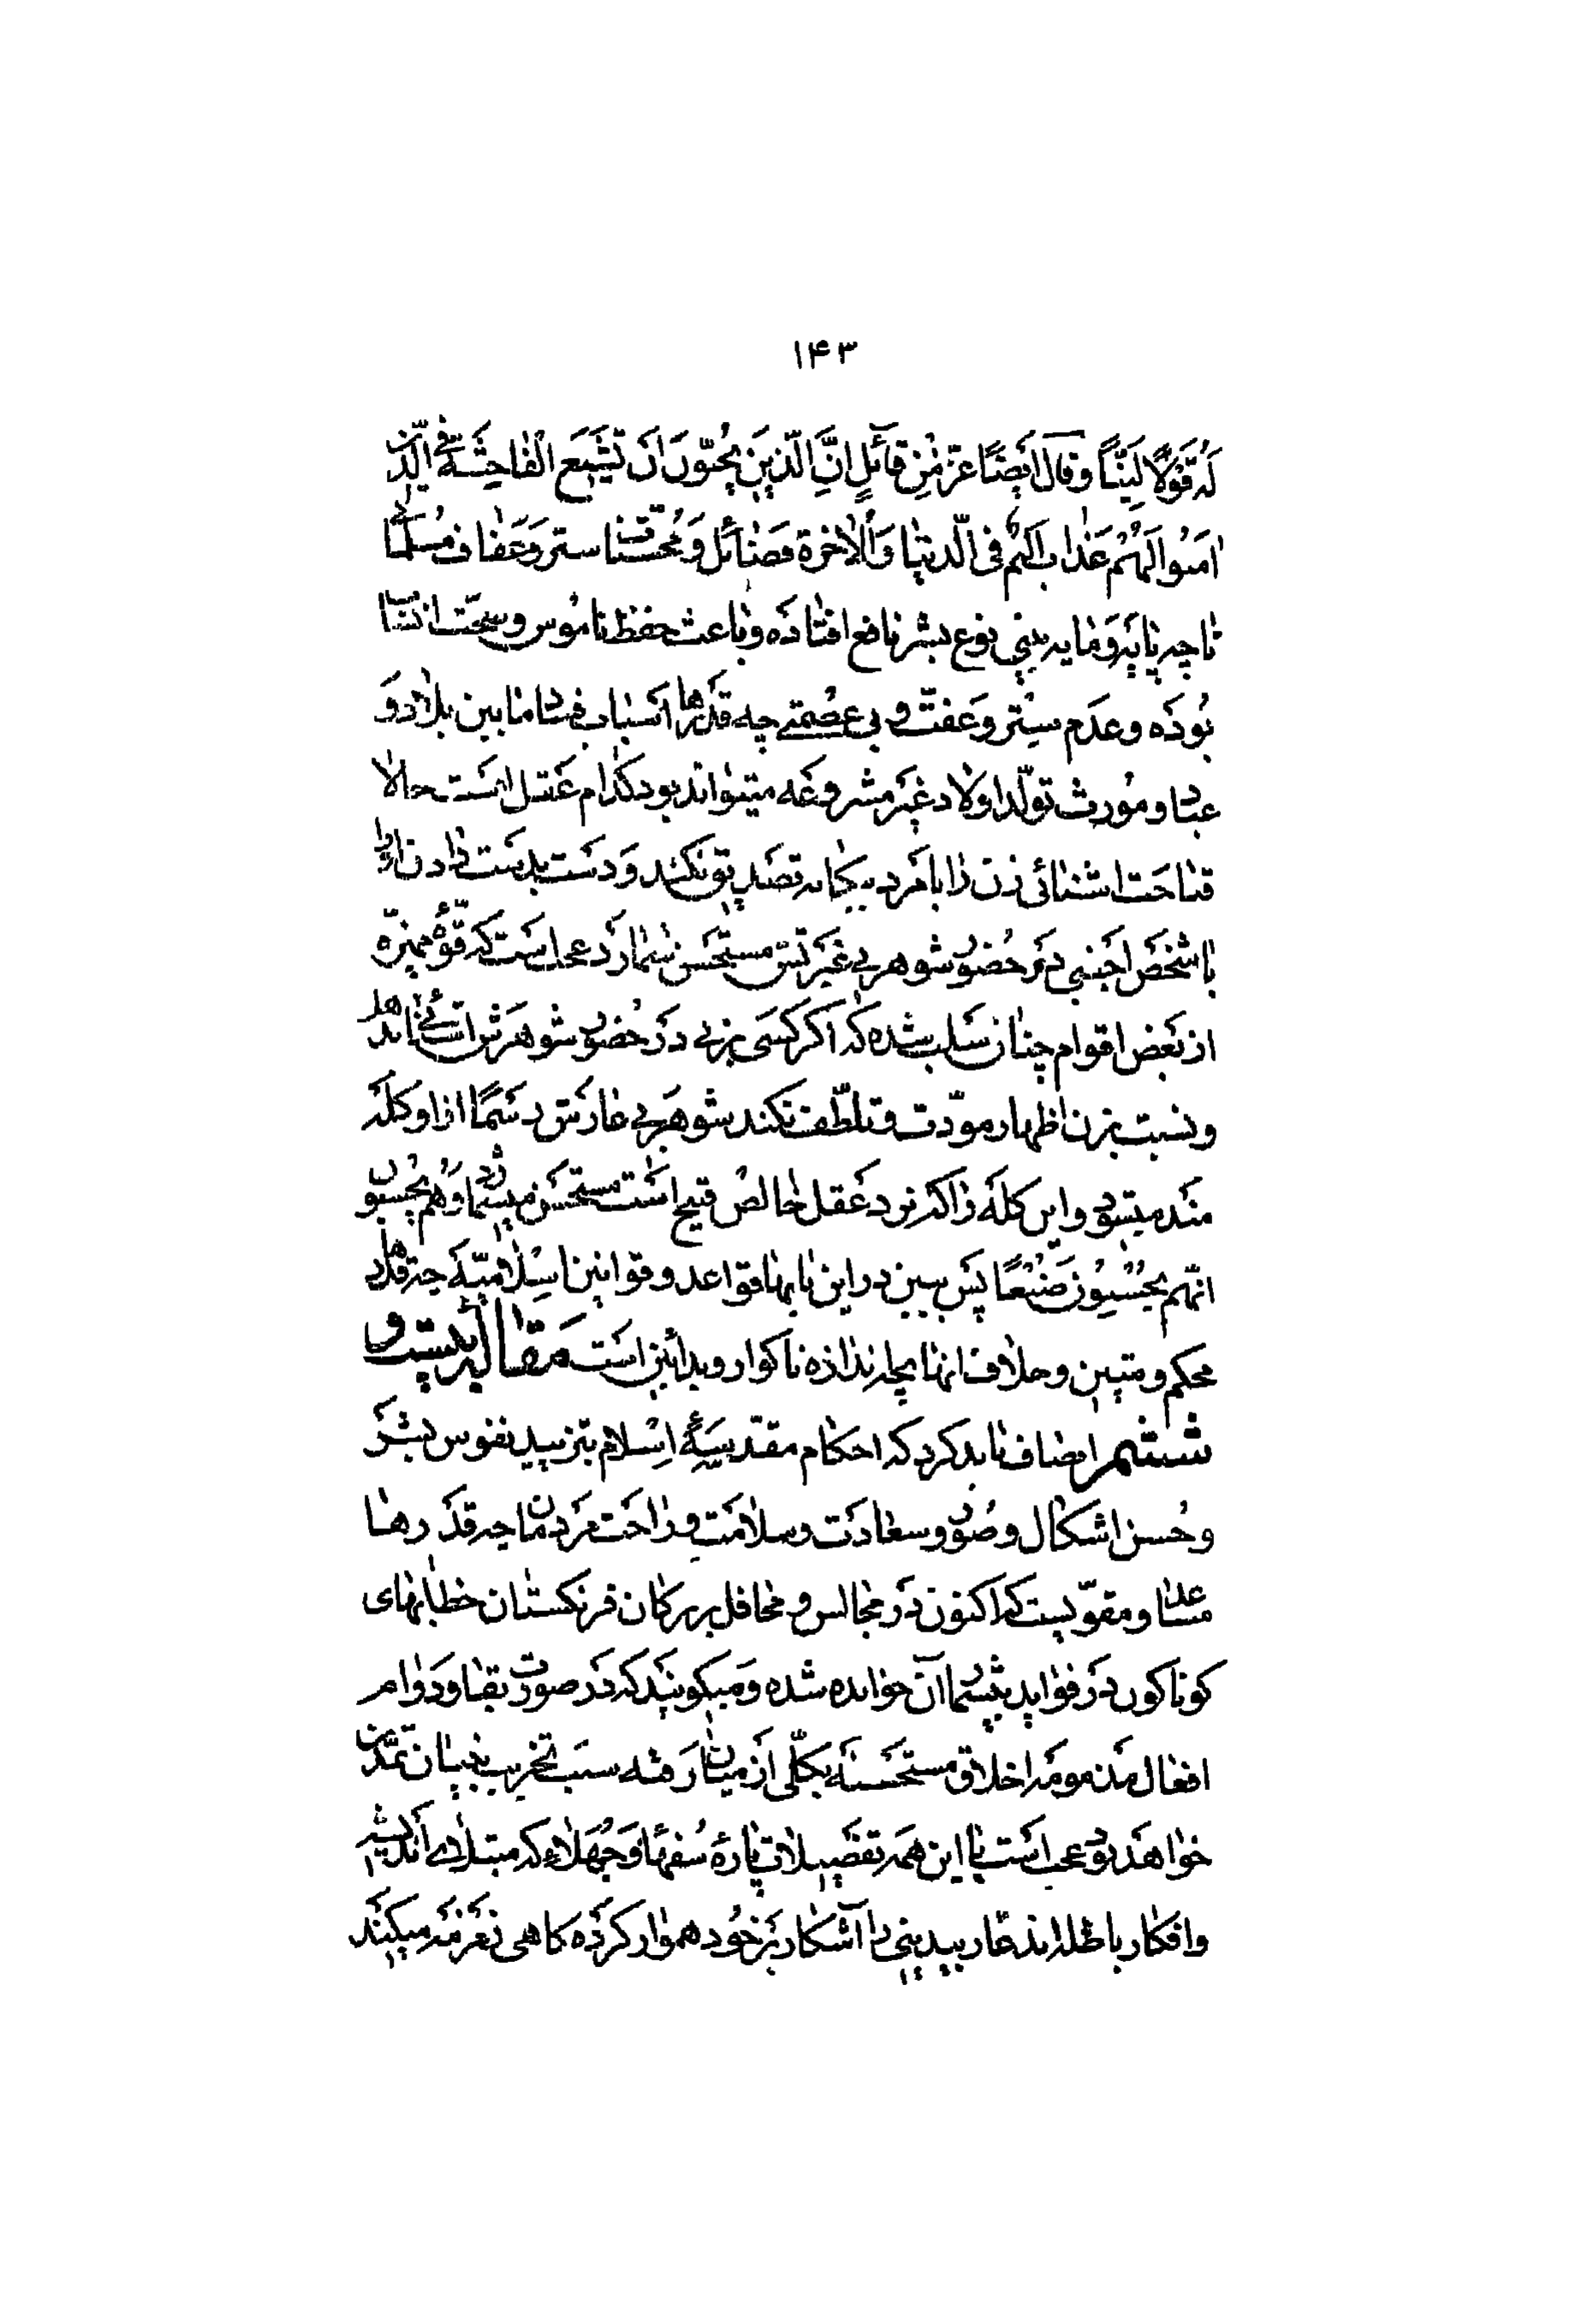 ۱۴۳
لَهُ قَوْلًا لَيِّنًا وَقالَ ايضًا عَزَّ مِن قائلٍ اِنَّ الَّذينَ يُحِبّونَ اَن تَشيعَ الْفاحِشَةُ فِي الَّذينَ
امَنُوا لَهُمْ عَذابٌ اَليمٌ فِى الدّنيا وَالْاٰخرة فضائل وَ مُحسّنات ستر وَ عَفاف مُسلّما
تا چه پايَه وَ مايه ببنى نوع بشر نافع افتاده و باعث حفظ نامُوس و صحّت انساب
بُوده و عدَم سِتر و عفّت و بى عِصْمتے چه قدَرها اسباب فساد ما بين بلاد وَ
عباد و مُورث تولّد اولاد غير مشروعَه ميتواند بود كدام عَقل است حالا
قباحَت اشنائى زن را با مَرد بيكانه تصديق نكند وَ دست بدست دادن او را
با شخَص اجنبى دَر حُضور شوهر بے غيرتش مستحسن شمارد عجب است كه قوّهٔ مميّزه
از بَعض اقوام چنان سَلب شده كه اكر كسَى بزنے دَر حُضور شوهَرش اشنائے ندهد
و نسبت بزن اظهار مودّت و تلطّف نكند شوهَر بے عارَش رسمًا از او كله
مَند ميشود و اين كله را كه نزد عَقل خالص قبيح است مستحسَن ميشمارد وَ هُم يحْسبون
انّهم يُحْسِنُونَ صُنْعًا پَس ببين در اين بابها قواعد و قوانين اسِلاميّه چه قدرها
محكم و متين و خلاف انها بچه اندازه ناكوار و بدائين است مَقالهٔ بيست و
ششم انصاف بايد كرد كه احكام مقدّسهٔ اِسْلام بتزييد نفوس بشر
و حُسن اشكال و صُوَر و سعادت و سلامت و راحَت مَردمان چه قدَرها
مساعد و مقوّيست كه اكنون دَر مجالس و محافل بزركان فرنكستان خطابهاى
كوناكون دَر فوايد بيشمار آن خوانده شده وَ ميكويند كه دَر صورت بقا و دَوام
افعال مَذمومَه اخلاق مستحسَنه بكلّى از ميان رَفته سبَب تخريب بنيان تمدّن
خواهَد بود عجب است با اين همَه تفصيلات پارهٔ سُفها وَ جُهلاء كه مبتلاے انديشه
و افكار باطله‌اند عار بيدينى را آشكار بَر خُود هموار كرده كاهى زمزمَه ميكنند